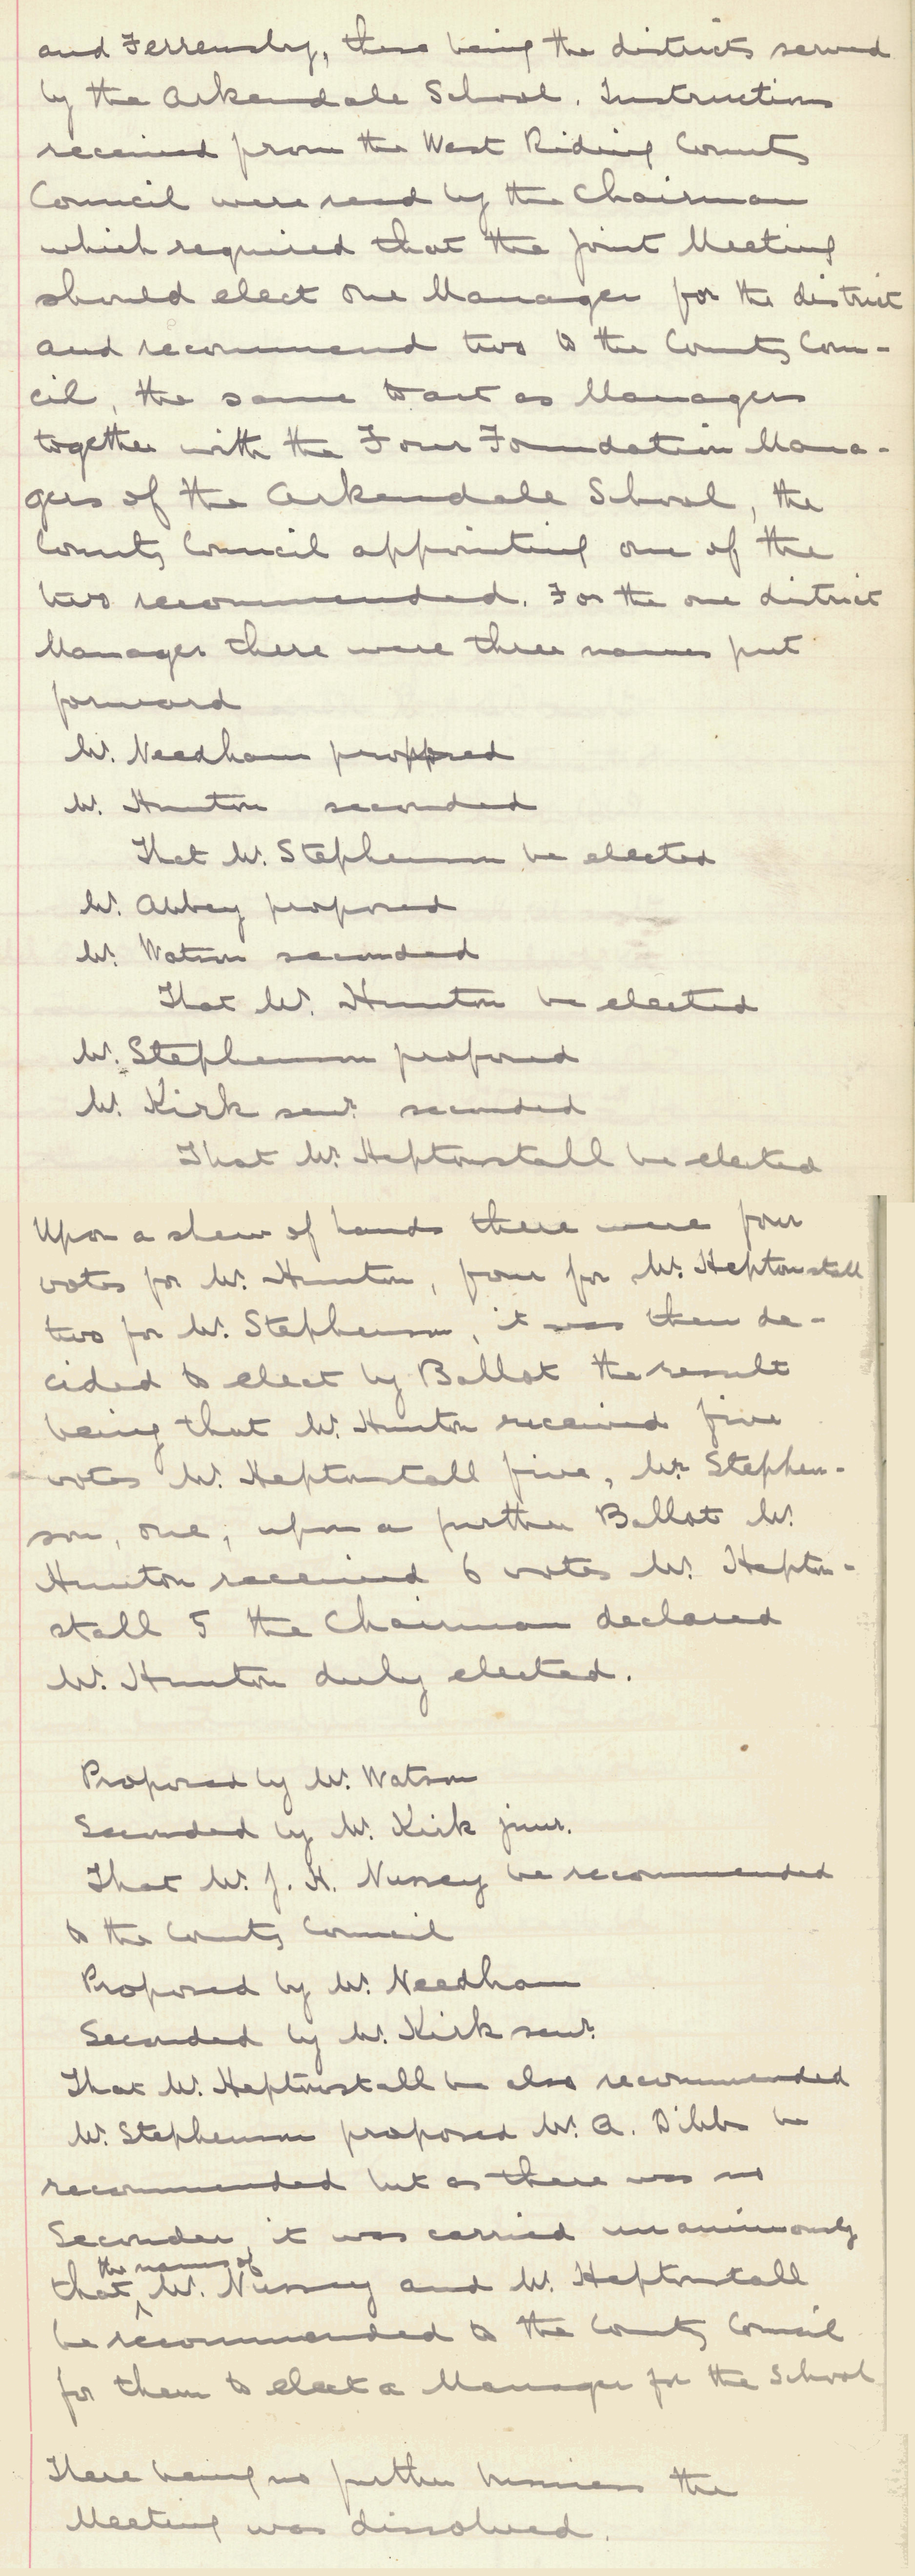 and Ferrensby, these being the districts served
by the Arkendale School. Instructions
received from the West Riding County
Council were read by the Chairman
which required that the Joint Meeting
should elect one Manager for the district
and recommend two to the County Coun-
cil, the same to act as Managers
together with the Four Foundation Mana-
gers of the Arkendale School, the
County Council appointing one of the
two recommended. For the one district
Manager there were three names put
forward
Mr. Needham proposed
Mr. Hunton seconded
That Mr. Stephenson be elected
Mr. Abbey proposed
Mr. Watson seconded
That Mr. Hunton be elected
Mr. Stephenson proposed
Mr. Kirk senr. seconded
That Mr. Heptonstall be elected
Upon a shew of hands there were four
votes for Mr. Hunton, four for Mr. Heptonstall
two for Mr. Stephenson, it was then de-
cided to elect by Ballot the result
being that Mr. Hunton received five
votes Mr. Heptonstall five, Mr. Stephen-
son, one, upon a further Ballot Mr.
Hunton received 6 votes Mr. Hepton-
stall 5 the Chairman declared
Mr. Hunton duly elected.
Proposed by Mr. Watson
Seconded by Mr. Kirk junr.
That Mr. J. H. Nussey be recommended
to the County Council
Proposed by Mr. Needham
Seconded by Mr. Kirk senr.
That Mr. Heptonstall be also recommended
Mr. Stephenson proposed Mr. A. Dibb be
recommended but as there was no
Seconder, it was carried unanimously
that the names of Mr. Nussey and Mr. Heptonstall
be recommended to the County Council
for them to elect a Manager for the School
There being no further business the
Meeting was dissolved.